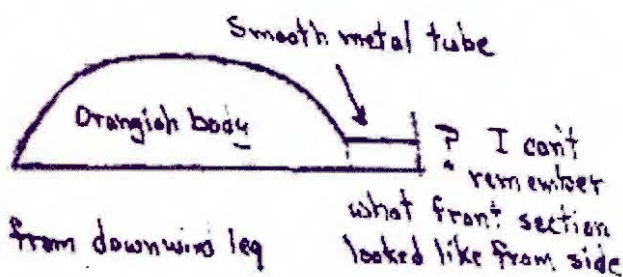 Smooth metal tube
Orangish body
? I can't
remember
what front section
looked like from side
from downwind leg